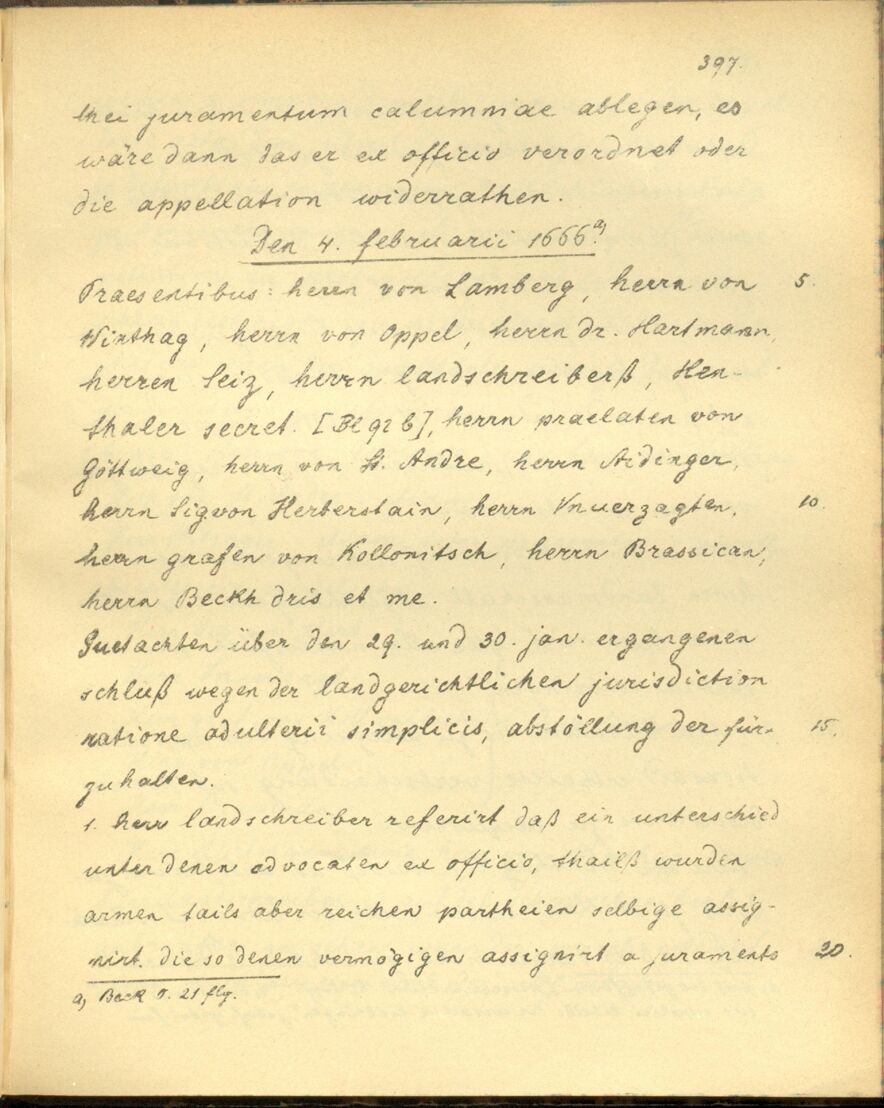 397.
thei juramentum calumniae ablegen, es
wäre dann das er ex officio verordnet oder
die appellation widerrathen.
Den 4. februarii 1666.a)
Praesentibus: herrn von Lamberg, herrn von 5.
Winthag, herrn von Oppel, herrn dr. Hartmann,
herren Seiz, herrn landschreiberß, Hen-
thaler secret. [Bl 92 b], herrn praelaten von
Göttweig, herrn von St. Andre, herrn Aidinger,
herrn Sig von Herberstain, herrn Vnuerzagten, 10.
herrn grafen von Kollonitsch, herrn Brassican,
herrn Beckh dris et me.
Guetachten über den 29. und 30. jan. ergangenen
schluß wegen der landgerichtlichen jurisdiction
ratione adulterii simplicis, abstöllung der für- 15.
zuhalten.
1. herr landschreiber referirt daß ein unterschied
unter denen advocaten ex officio, thailß wurden
armen tails aber reichen partheien selbige assig-
nirt. die so denen vermögigen assignirt a juraments 20.
a) Beck S. 21 flg.